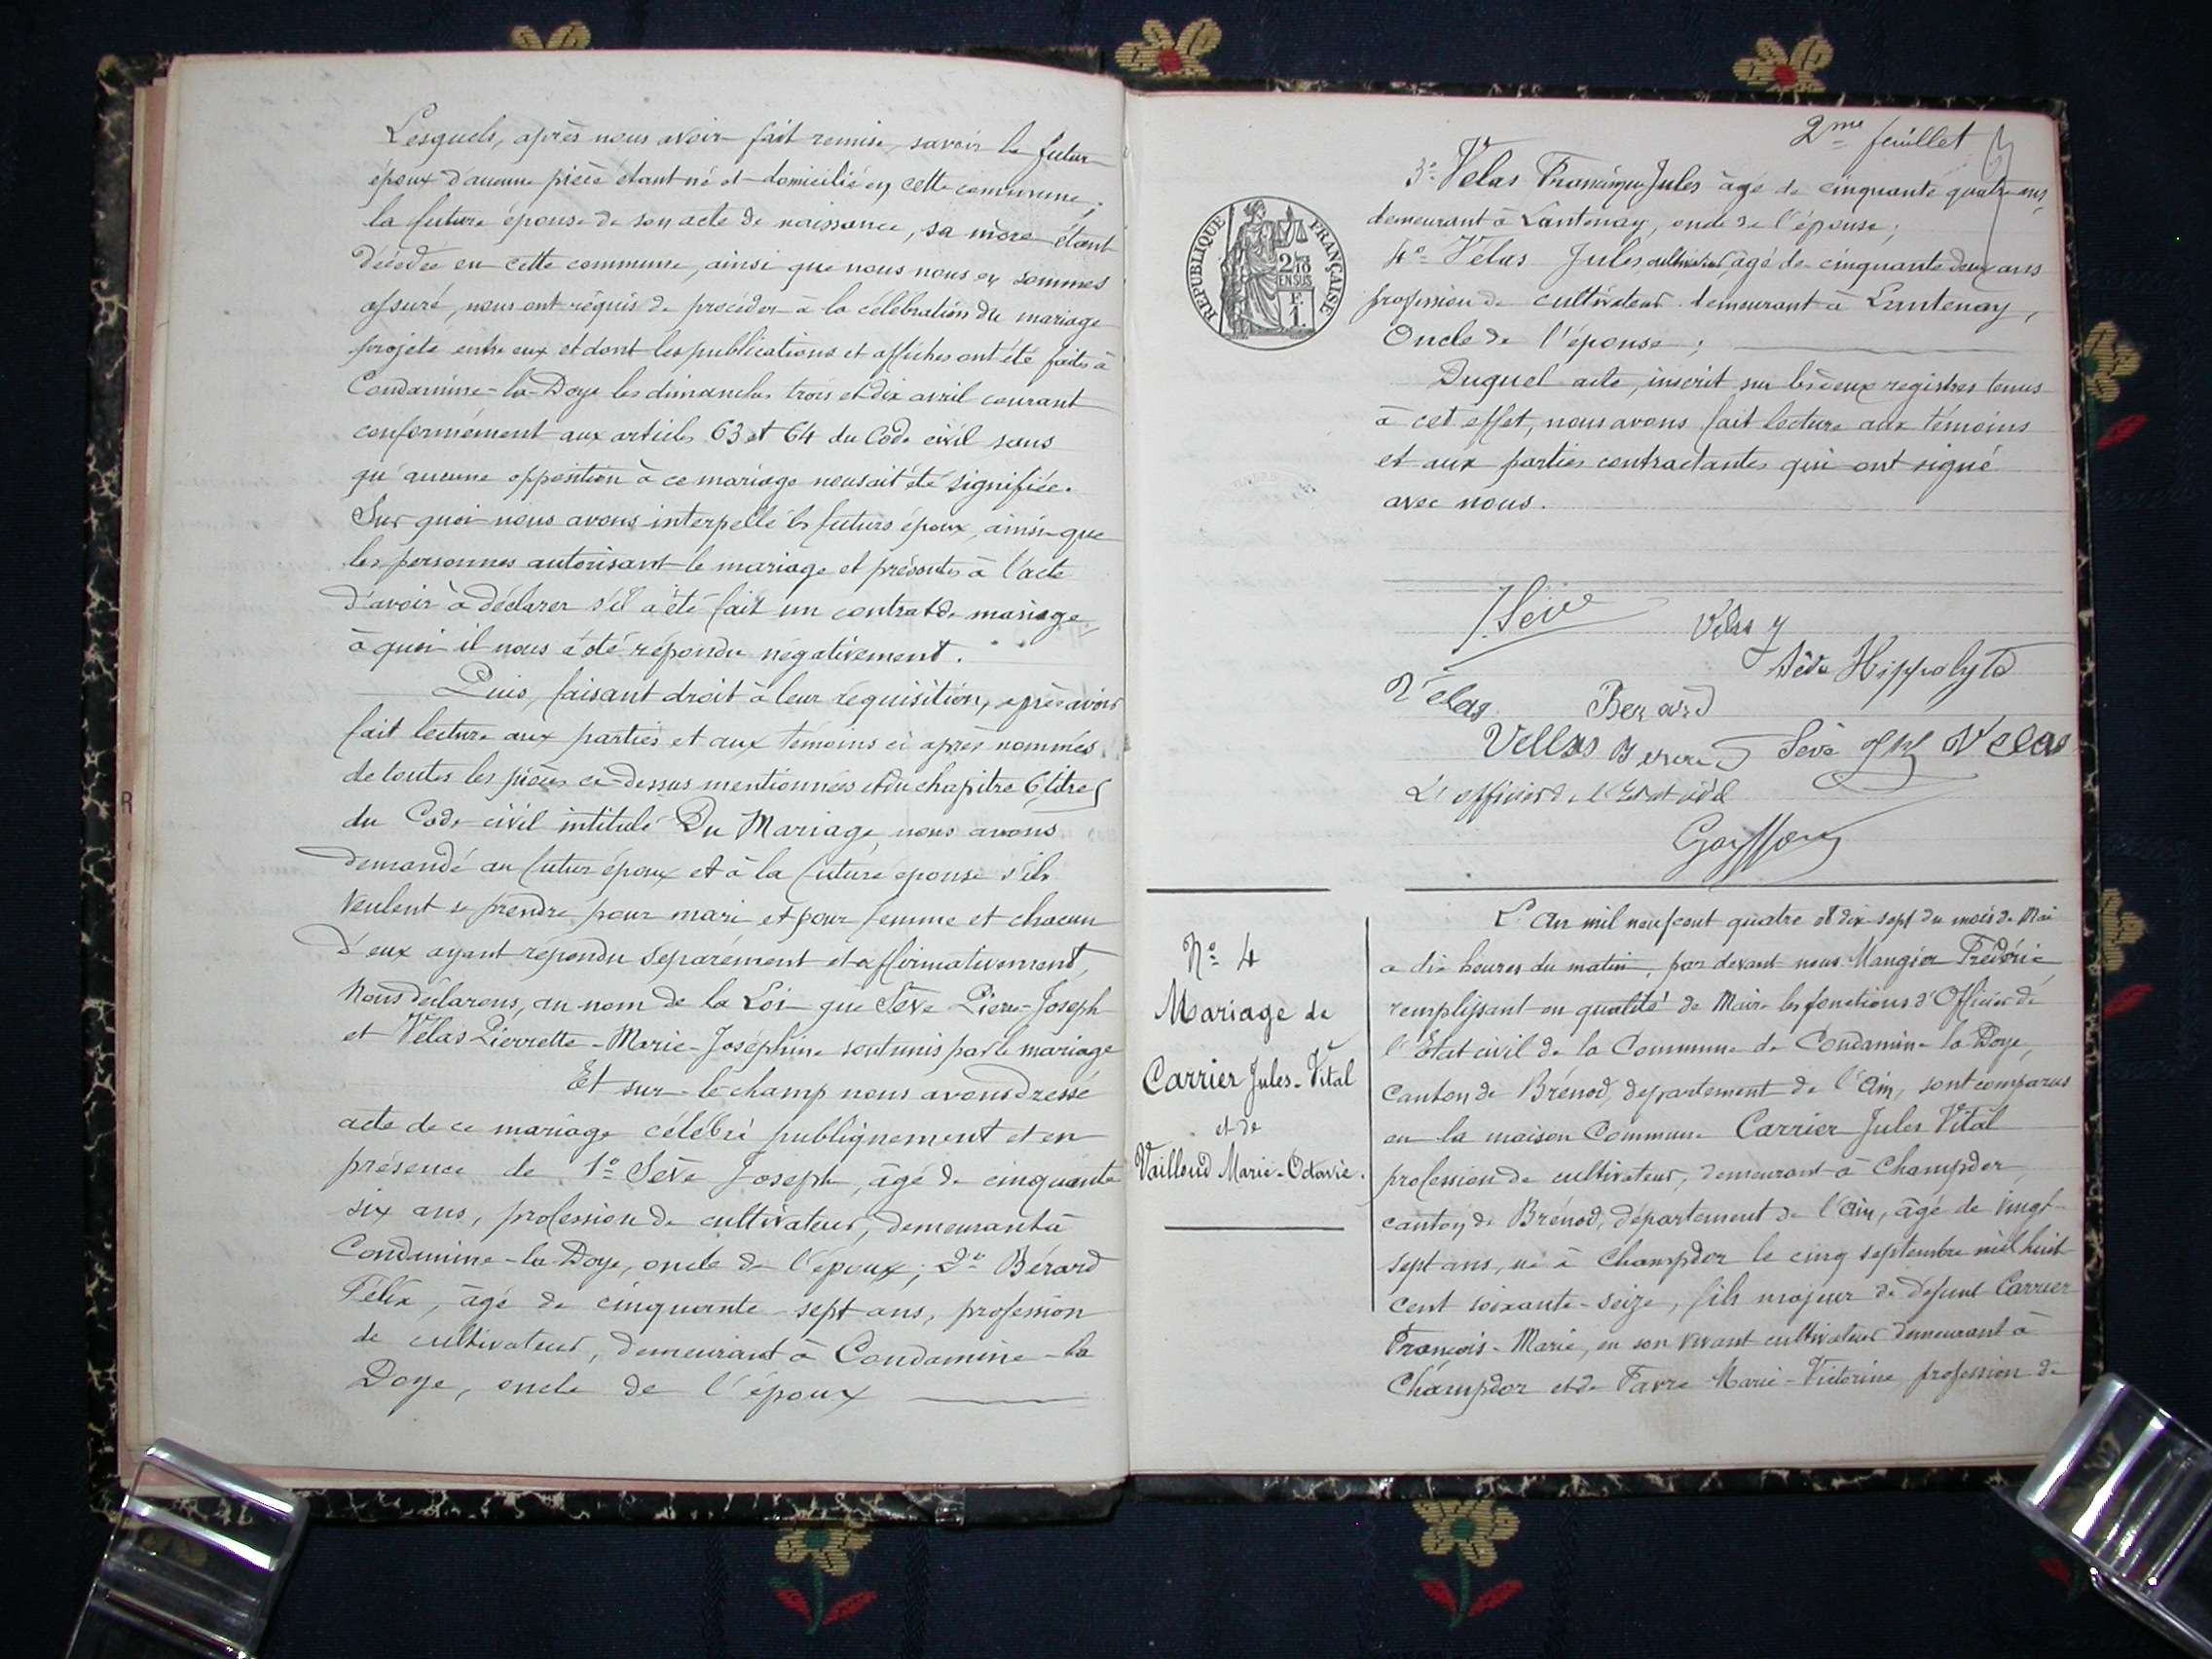 Lesquels, après nous avoir fait remise, savoir le futur
époux d'aucune pièce étant né et domicilié en cette commune;
la future épouse de son acte de naissance, sa mère étant
décédée en cette commune, ainsi que nous nous en sommes
assuré, nous ont requis de procéder à la célébration du mariage
projeté entre eux et dont les publications et affiches ont été faites à
Condamine-la-Doye les dimanches trois et dix avril courant
conformément aux articles 63 et 64 du Code civil sans
qu'aucune opposition à ce mariage nous ait été signifiée.
Sur quoi nous avons interpellé les futurs époux, ainsi que
les personnes autorisant le mariage et présentes à l'acte
d'avoir à déclarer s'il a été fait un contrat de mariage,
à quoi il nous a été répondu négativement.
Puis, faisant droit à leur réquisition, après avoir
fait lecture aux parties et aux témoins ci après nommés
de toutes les pièces ci-dessus mentionnées et du chapitre 6, titre 5
du Code civil intitulé Du Mariage, nous avons
demandé au futur époux et à la future épouse s'ils
veulent se prendre pour mari et pour femme et chacun
d'eux ayant répondu séparément et affirmativement,
Nous déclarons, au nom de la Loi que Sève Pierre-Joseph
et Vélas Pierrette-Marie-Joséphine sont unis par le mariage
Et sur-le-champ nous avons dressé
acte de ce mariage célébré publiquement et en
présence de 1º Sève Joseph, âgé de cinquante
six ans, profession de cultivateur, demeurant à
Condamine-la-Doye, oncle de l'époux; 2º Bérard
Félix, âgé de cinquante-sept ans, profession
de cultivateur, demeurant à Condamine-la
Doye, oncle de l'époux
2me feuillet
3º Velas Francisque Jules âgé de cinquante quatre ans,
demeurant à Lantenay, oncle de l'épouse;
4º Velas Jules cultivateur âgé de cinquante deux ans
profession de cultivateur demeurant à Lantenay,
Oncle de l'épouse;
REPUBLIQUE FRANÇAISE
2/10 EN SUS
F. 1.
Duquel acte, inscrit sur les deux registres tenus
à cet effet, nous avons fait lecture aux témoins
et aux parties contractantes qui ont signé
avec nous.
J. Sève
Velas J
Sève Hippolyte
Vélas
Berard
Vellas Berard Sève Velas
L'officier de l'Etat civil
Nº 4
Mariage de
Carrier Jules-Vital
et de
Vailloud Marie-Octavie.
L'An mil neuf cent quatre et dix-sept du mois de Mai
a dix heures du matin, par devant nous Mangier Frédéric
remplissant en qualité de Maire les fonctions d'Officier de
l'Etat civil de la Commune de Condamine la Doye,
Canton de Brénod, département de l'Ain, sont comparus
en la maison Commune Carrier Jules Vital
profession de cultivateur, demeurant à Champdor,
canton de Brénod, département de l'Ain, âgé de vingt-
sept ans, né à Champdor le cinq septembre mil huit
cent soixante-seize, fils majeur de défunt Carrier
François-Marie, en son vivant cultivateur demeurant à
Champdor et de Favre Marie-Victorine profession de